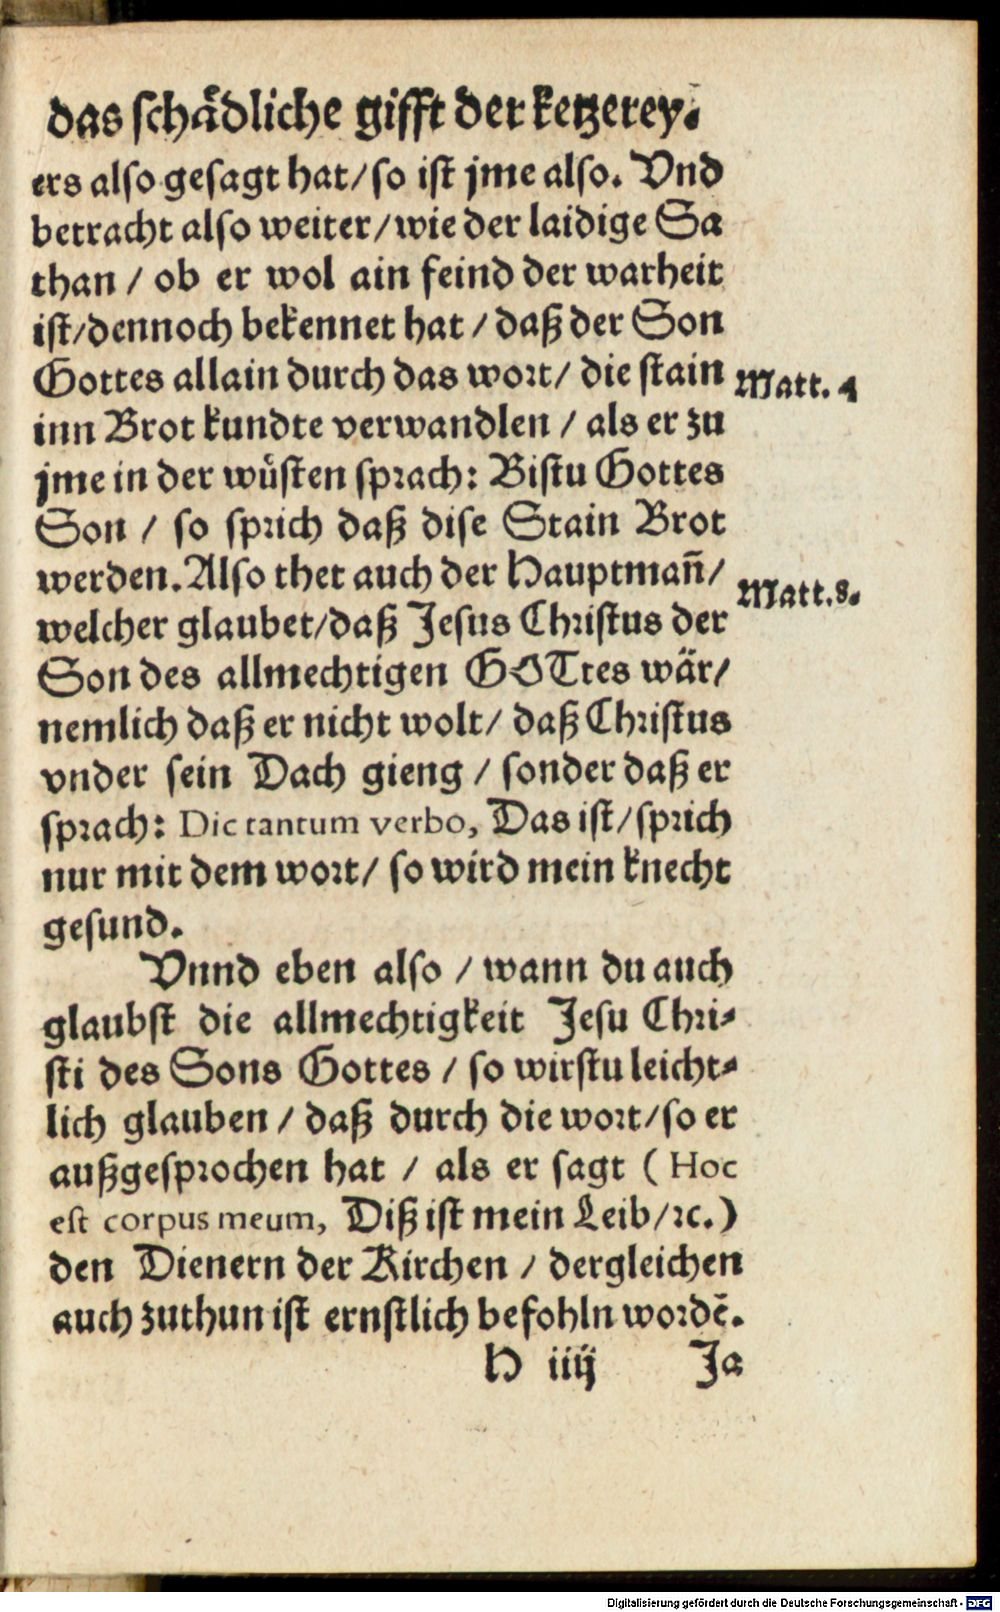 das schädliche gifft der ketzerey.
ers also gesagt hat/so ist jme also. Vnd
betracht also weiter/wie der laidige Sa
than / ob er wol ain feind der warheit
ist/dennoch bekennet hat / daß der Son
Gottes allain durch das wort/ die stain
Matt. 4
inn Brot kundte verwandlen / als er zu
jme in der wüsten sprach: Bistu Gottes
Son / so sprich daß dise Stain Brot
werden. Also thet auch der Hauptmañ/
Matt. 8.
welcher glaubet/daß Jesus Christus der
Son des allmechtigen GOTtes wär/
nemlich daß er nicht wolt/ daß Christus
vnder sein Dach gieng / sonder daß er
sprach: Dic tantum verbo, Das ist/sprich
nur mit dem wort/ so wird mein knecht
gesund.
Vnnd eben also / wann du auch
glaubst die allmechtigkeit Jesu Chri-
sti des Sons Gottes / so wirstu leicht-
lich glauben / daß durch die wort/so er
außgesprochen hat / als er sagt ( Hoc
est corpus meum, Diß ist mein Leib/ꝛc.)
den Dienern der Kirchen / dergleichen
auch zuthun ist ernstlich befohln wordē.
H iiij Ja
Digitalisierung gefördert durch die Deutsche Forschungsgemeinschaft - DFG